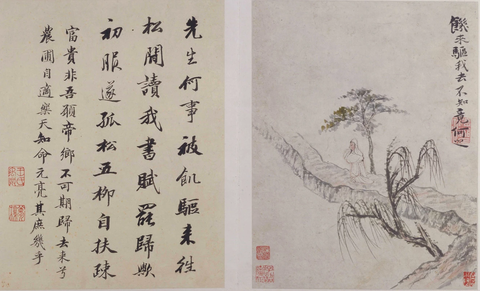 饑来驅我去不知竟何之
先生何事被飢驅来往
松閒讀我書賦罷歸歟
初服遂孤松五柳自扶疎
富貴非吾願帝鄉不可期歸去来兮
農圃自適樂天知命元亮其庶幾乎